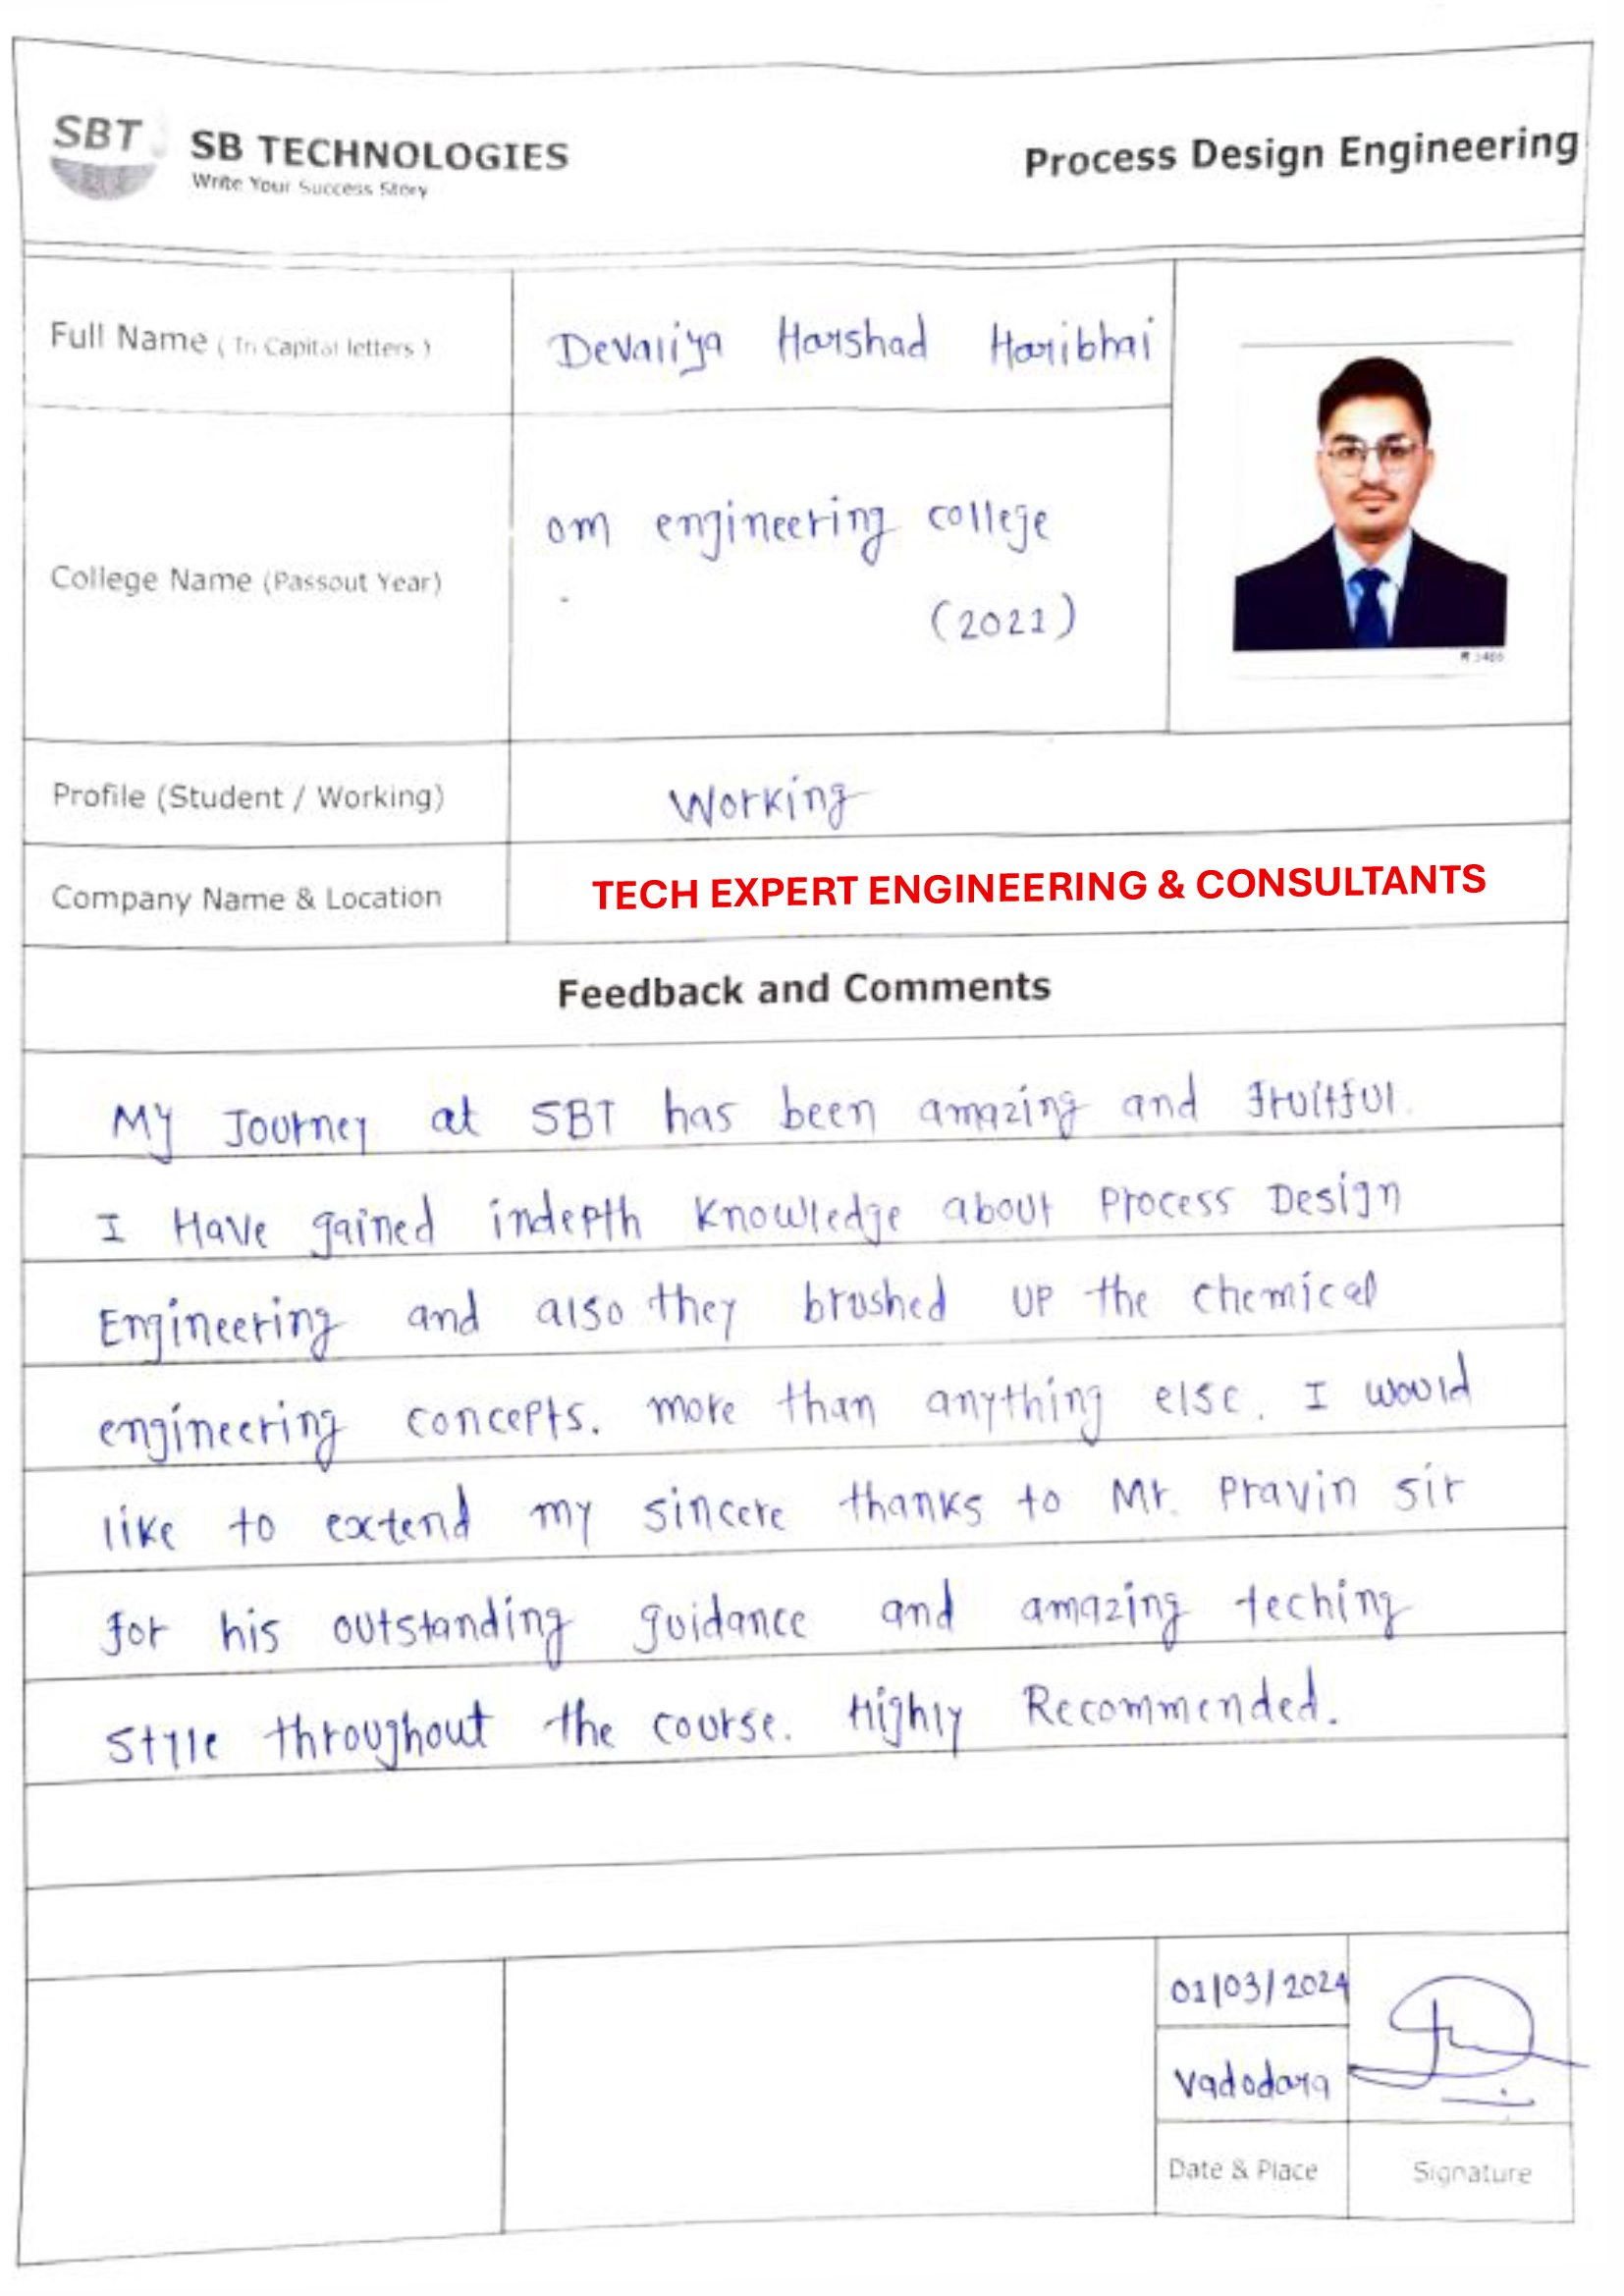 SBT
SB TECHNOLOGIES
Write Your Success Story
Process Design Engineering
Full Name ( In Capital letters )
Devaliya Harshad Haribhai
College Name (Passout Year)
om engineering college
(2021)
Profile (Student / Working)
Working
Company Name & Location
TECH EXPERT ENGINEERING & CONSULTANTS
Feedback and Comments
My Journey at SBT has been amazing and fruitful.
I Have gained indepth Knowledge about Process Design
Engineering and also they brushed up the chemical
engineering concepts. more than anything else. I would
like to extend my sincere thanks to Mr. Pravin sir
for his outstanding guidance and amazing teching
style throughout the course. Highly Recommended.
01/03/2024
Vadodara
Date & Place
Signature